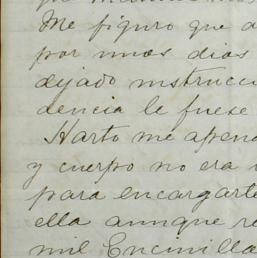 Me figuro que a
por unos dias
dejado instrucci
dencia le fuese
Harto me apena
y cuerpo no era
para encargarte
ella aunque re
mil Encinilla